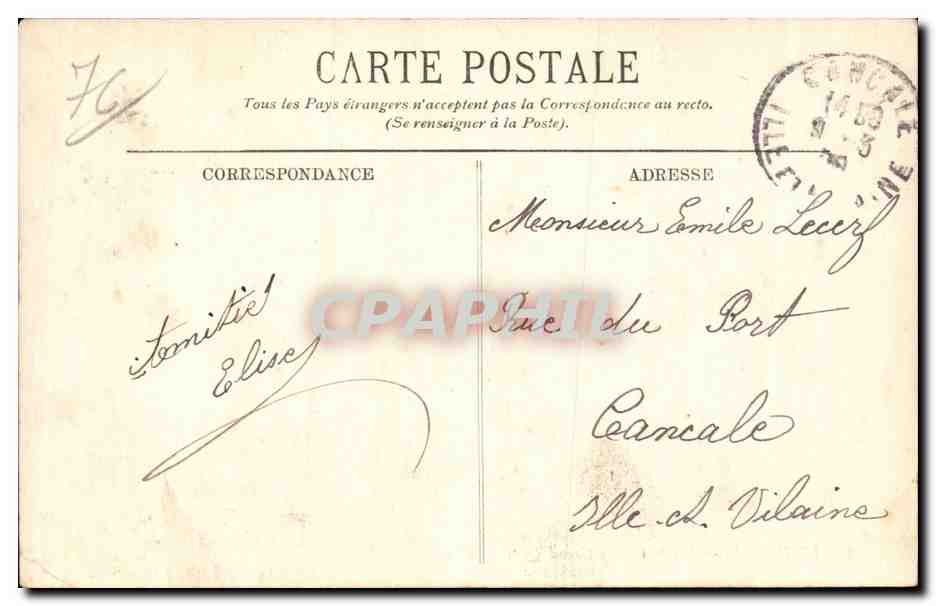 76
CARTE POSTALE
Tous les Pays étrangers n'acceptent pas la Correspondance au recto.
(Se renseigner à la Poste).
CORRESPONDANCE
ADRESSE
CANCALE
14
ILLE-ET-
NE
Monsieur Emile Lecerf
Rue du Port
Cancale
Ille-et-Vilaine
Amitié
Elise
CPAPHIL